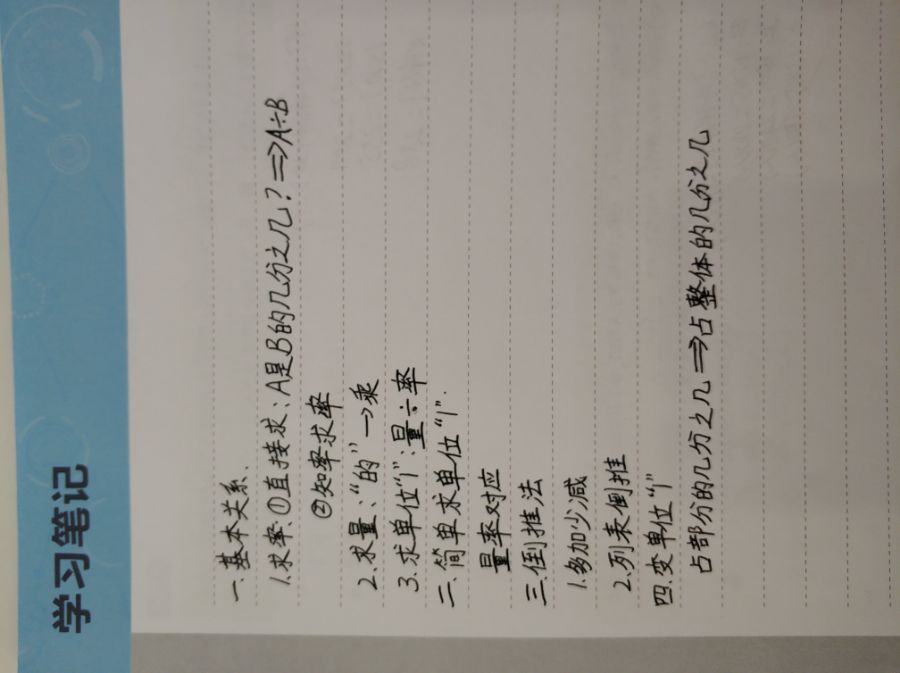 学习笔记
一.基本关系.
1.求率①直接求:A是B的几分之几?⇒A÷B
②知率求率
2.求量:“的”→乘
3.求单位“1”:量÷率
二.简单求单位“1”.
量率对应
三.倒推法
1.多加少减
2.列表倒推
四.变单位“1”
占部分的几分之几⇒占整体的几分之几